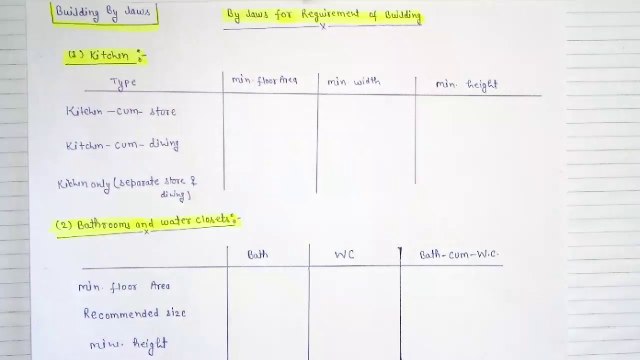 Building By Laws
By Laws for Requirement of Building
(1) Kitchen :-
Type min. floor Area min width min. height
Kitchen - cum - store
Kitchen - cum - dining
Kitchen only (separate store &
dining)
(2) Bathrooms and water closets:-
Bath WC Bath - cum - W.C.
min. floor Area
Recommended size
min. height